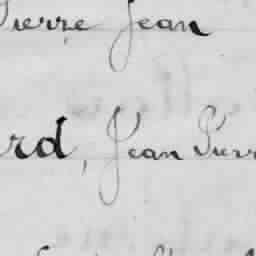 Pierre Jean
rd, Jean Pierr